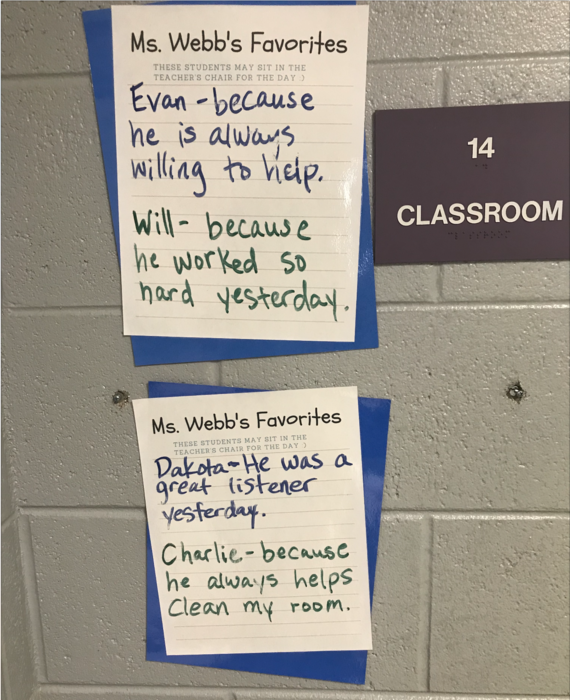 Ms. Webb's Favorites
THESE STUDENTS MAY SIT IN THE
TEACHER'S CHAIR FOR THE DAY :)
Evan - because
he is always
willing to help.
Will - because
he worked so
hard yesterday.
14
CLASSROOM
Ms. Webb's Favorites
THESE STUDENTS MAY SIT IN THE
TEACHER'S CHAIR FOR THE DAY :)
Dakota - He was a
great listener
yesterday.
Charlie - because
he always helps
Clean my room.